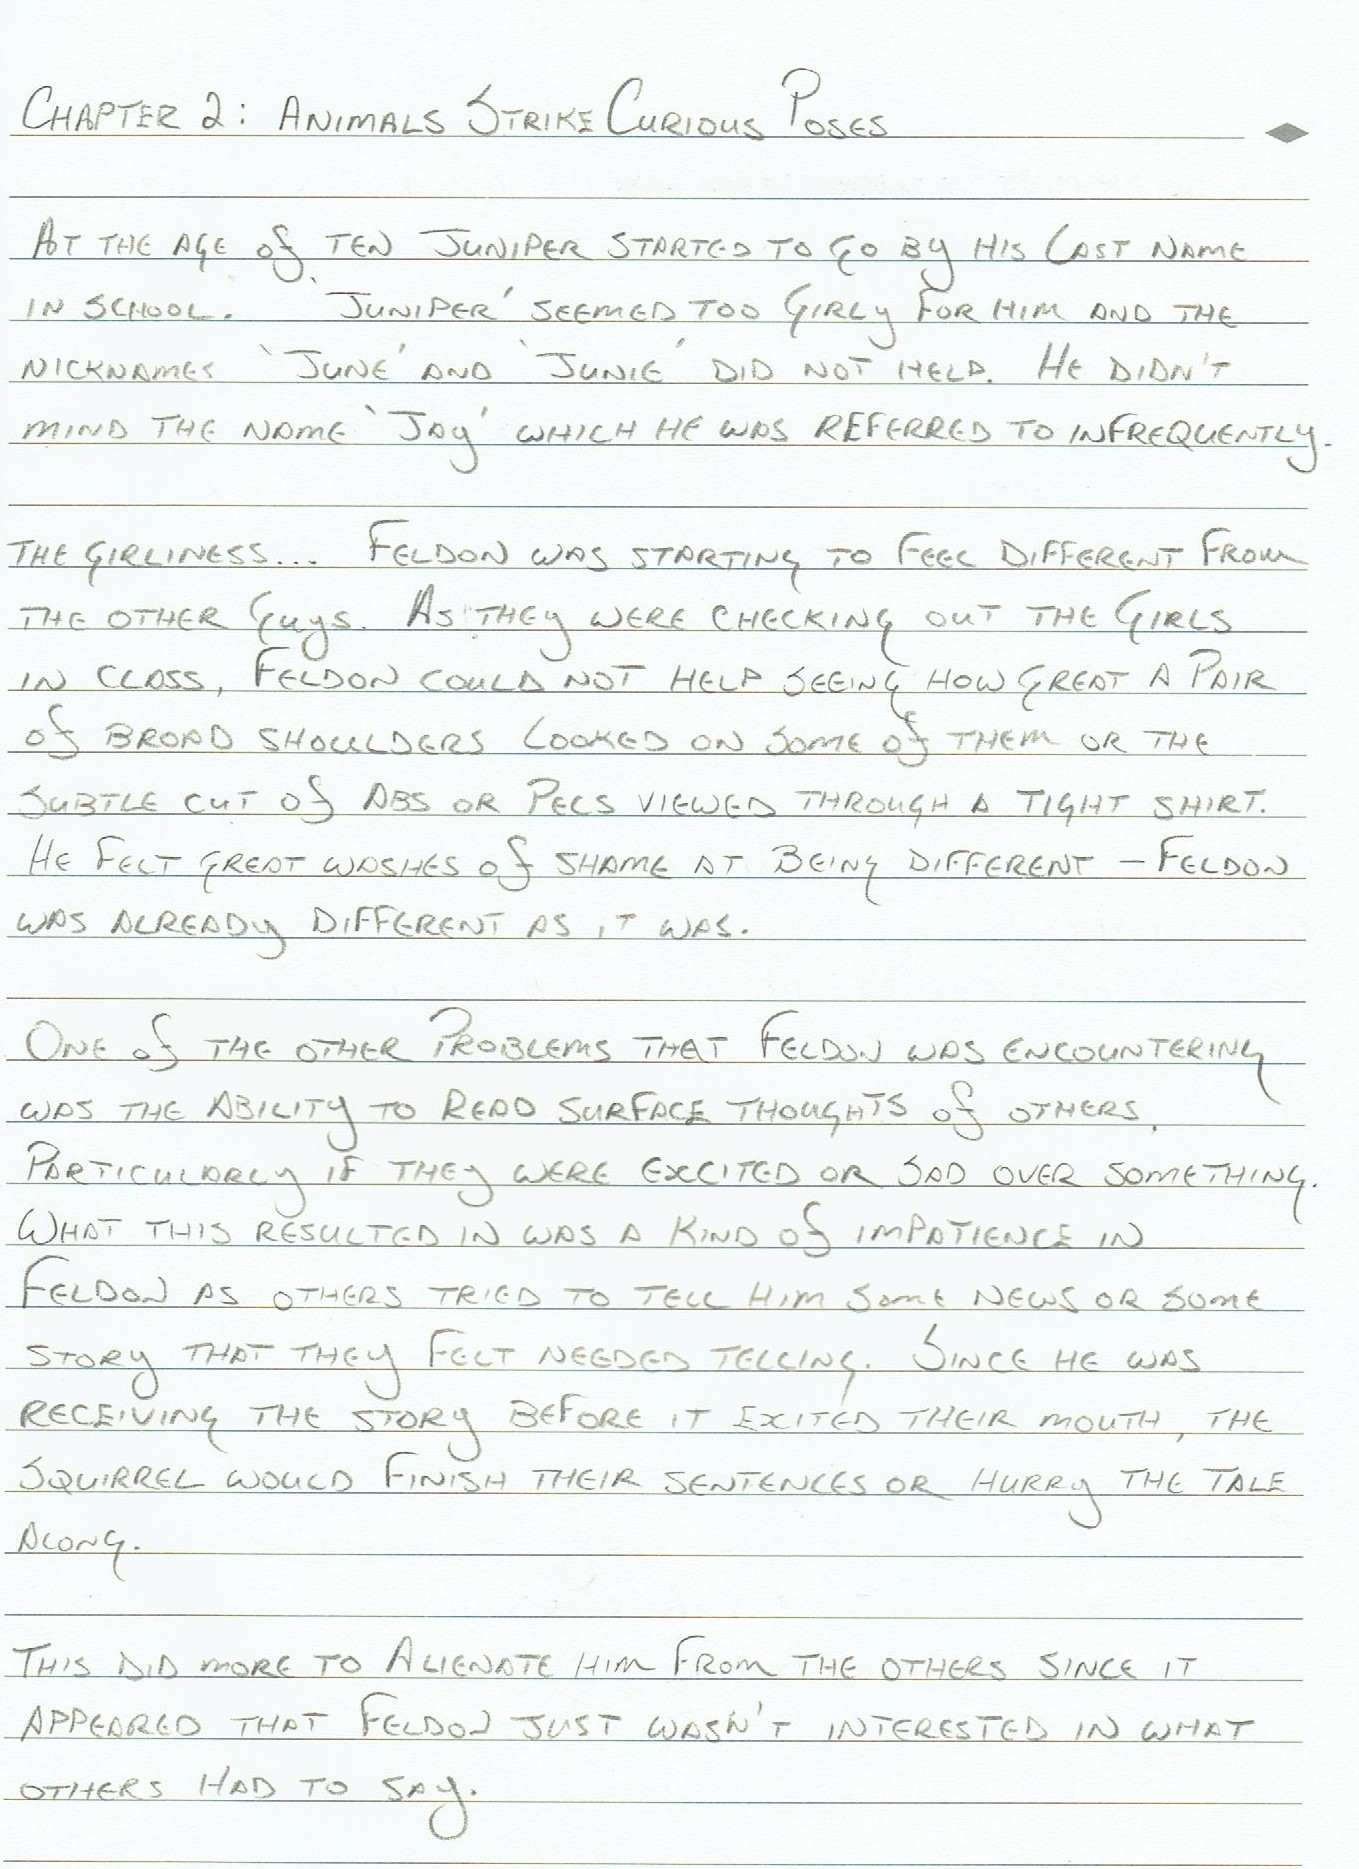 CHAPTER 2: ANIMALS STRIKE CURIOUS POSES
AT THE AGE of TEN JUNIPER STARTED TO GO By HIS LAST NAME
IN SCHOOL. 'JUNIPER' SEEMED TOO GIRLy FOR HIM AND THE
NICKNAMES 'JUNE' AND 'JUNIE' DID NOT HELP. HE DIDN'T
MIND THE NAME 'JAy' WHICH HE WAS REFERRED TO INFREQUENTLy.
THE GIRLINESS... FELDON WAS STARTING TO FEEL DIFFERENT FROM
THE OTHER GUyS. AS THEy WERE CHECKING OUT THE GIRLS
IN CLASS, FELDON COULD NOT HELP SEEING HOW GREAT A PAIR
of BROAD SHOULDERS LOOKED ON SOME of THEM OR THE
SUBTLE CUT of ABS OR PECS VIEWED THROUGH A TIGHT SHIRT.
HE FELT GREAT WASHES of SHAME AT BEING DIFFERENT – FELDON
WAS ALREADy DIFFERENT AS IT WAS.
ONE of THE OTHER PROBLEMS THAT FELDON WAS ENCOUNTERING
WAS THE ABILITy TO READ SURFACE THOUGHTS of OTHERS,
PARTICULARLy IF THEy WERE EXCITED OR SAD OVER SOMETHING.
WHAT THIS RESULTED IN WAS A KIND of IMPATIENCE IN
FELDON AS OTHERS TRIED TO TELL HIM SOME NEWS OR SOME
STORy THAT THEy FELT NEEDED TELLING. SINCE HE WAS
RECEIVING THE STORy BEFORE IT EXITED THEIR MOUTH, THE
SQUIRREL WOULD FINISH THEIR SENTENCES OR HURRy THE TALE
ALONG.
THIS DID MORE TO ALIENATE HIM FROM THE OTHERS SINCE IT
APPEARED THAT FELDON JUST WASN'T INTERESTED IN WHAT
OTHERS HAD TO SAy.